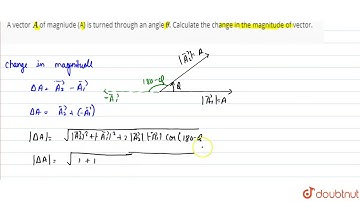 A vector A of magniude (A) is turned through an angle θ. Calculate the change in the magnitude of vector.
change in magnitude
ΔA = A₂ - A₁
ΔA = A₂ + (-A₁)
|ΔA| = √|A₂|² + |-A₁|² + 2 |A₂| |-A₁| cos (180-θ
|ΔA| = √ 1 + 1
|A₂| = A
180-θ
-A₁
θ
|A₁| = A
doubtnut